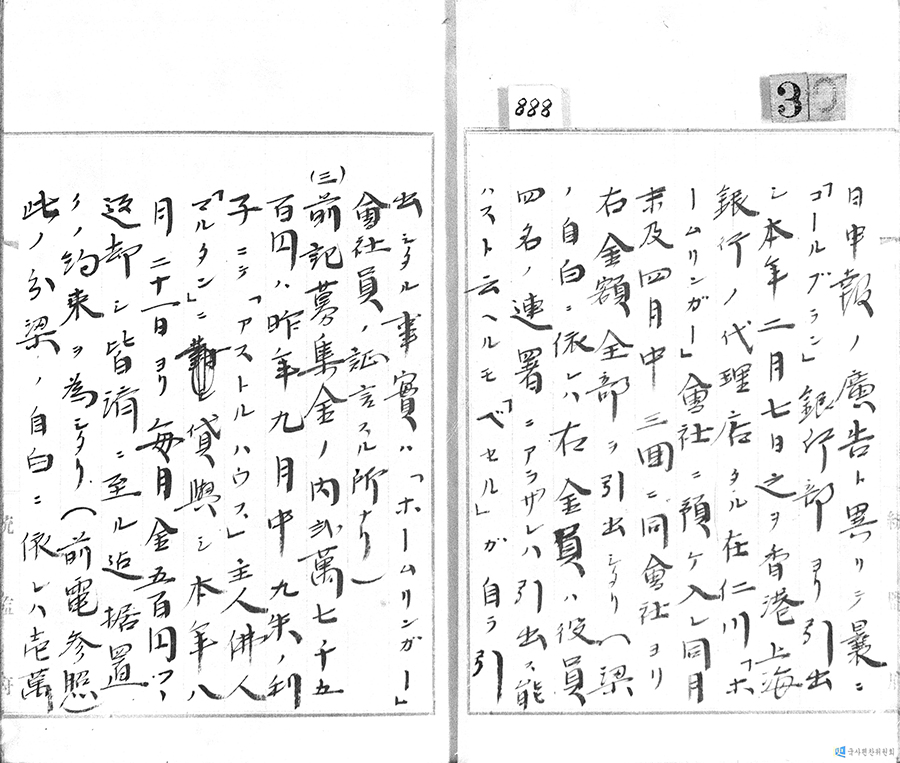 888
30
日申報ノ廣告ト異リテ曩ニ
「コールブラン」銀行部ヨリ引出
シ本年二月七日之ヲ香港上海
銀行ノ代理店タル在仁川「ホ
ームリンガー」會社ニ預ケ入レ同月
末及四月中三囬ニ同會社ヨリ
右金額全部ヲ引出シタリ(梁
ノ自白ニ依レハ右金員ハ役員
四名ノ連署ニアラサレハ引出ス能
ハスト云ヘルモ「ベセル」ガ自ラ引
出シタル事實ハ「ホームリンガー」
會社員ノ証言スル所ナリ)
(三)前記募集金ノ内弐萬七千五
百円ハ昨年九月中九朱ノ利
子ニテ「アストルハウス」主人佛人
「マルタン」ニ貸與シ本年八
月二十一日ヨリ毎月金五百円ツヽ
返却シ皆濟ニ至ル迠据置
ノ約束ヲ為シタリ(前電参照)
此ノ分梁ノ自白ニ依レハ壱萬
統監府
국사편찬위원회